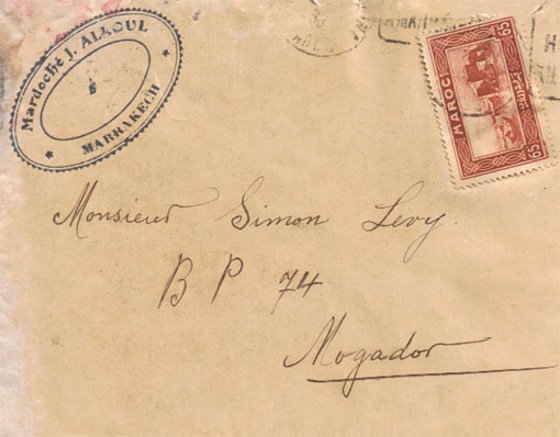 Mardoché J. ALACUL
MARRAKECH
MAROC
65
65
Monsieur Simon Levy.
B P 74
Mogador